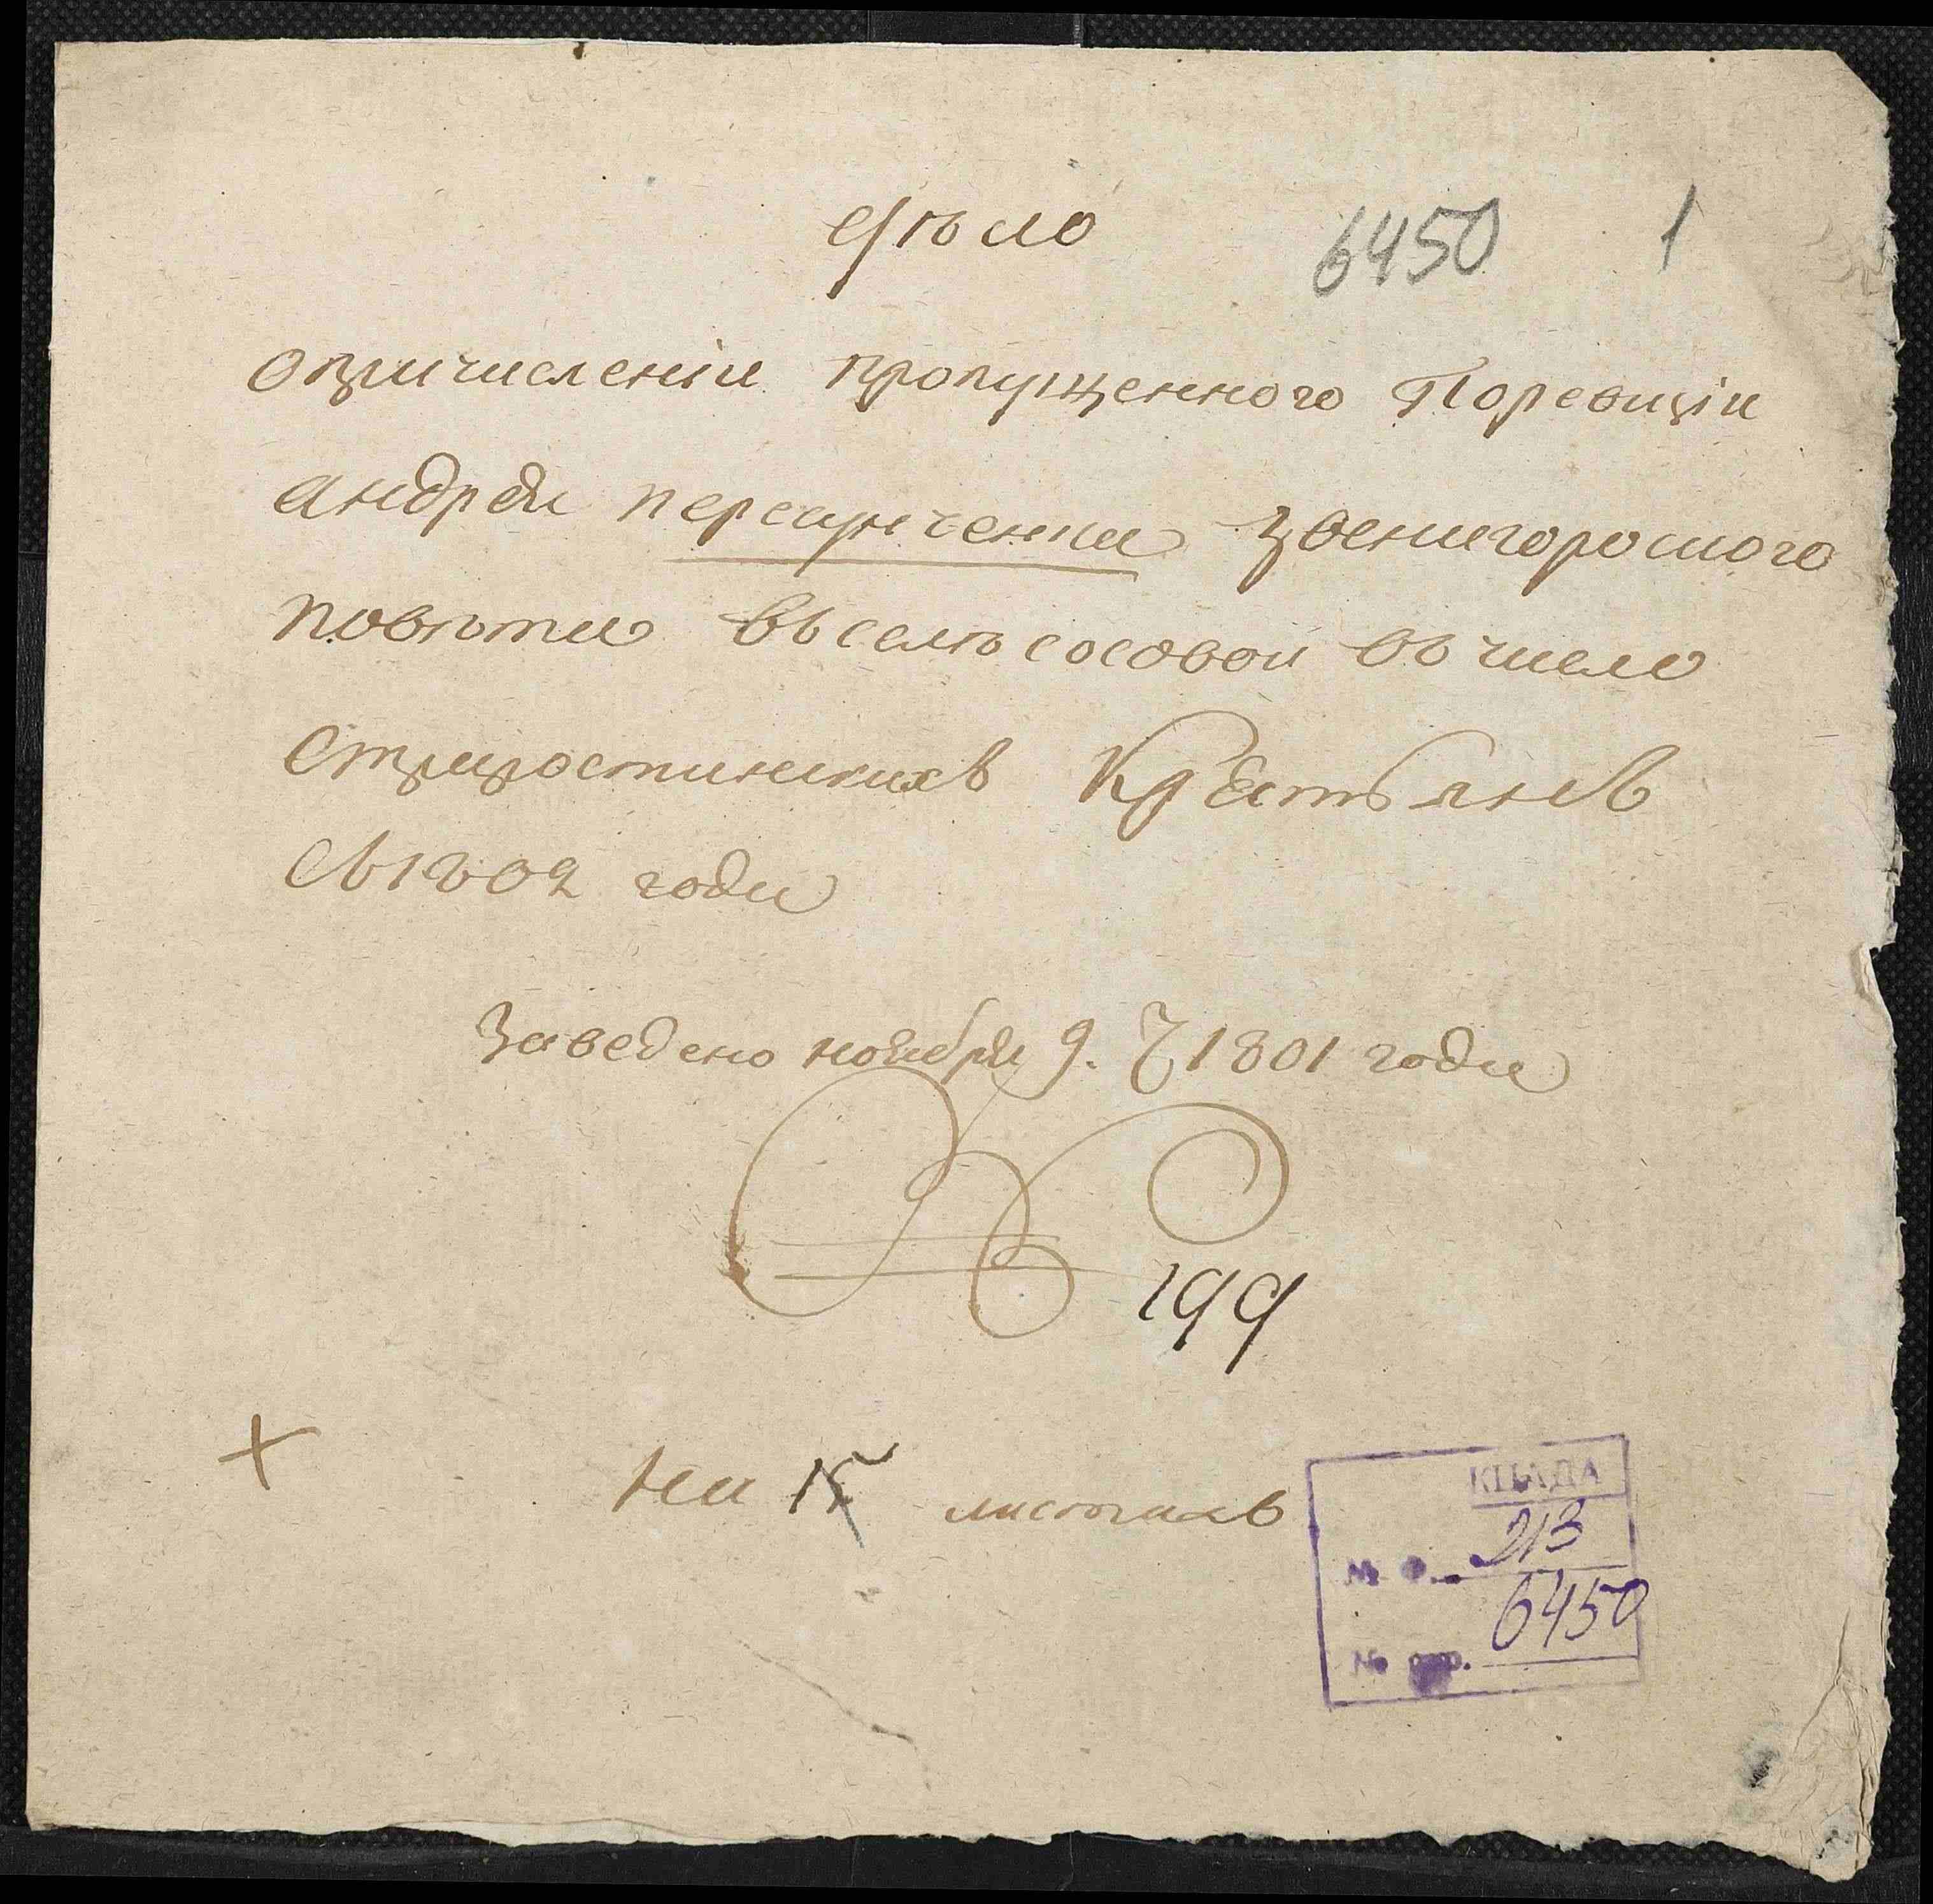 дѣло
6450 1
опричисленіи пропущенного Поревизіи
андрея Звенигороского
повѣта въ селѣ сосовой въ число
старостинскихъ Крестьянъ
съ 1802 года
Заведено ноября 9. Ч 1801 года
199
на 15 листахъ
КЦАДА
№ ф. 213
6450